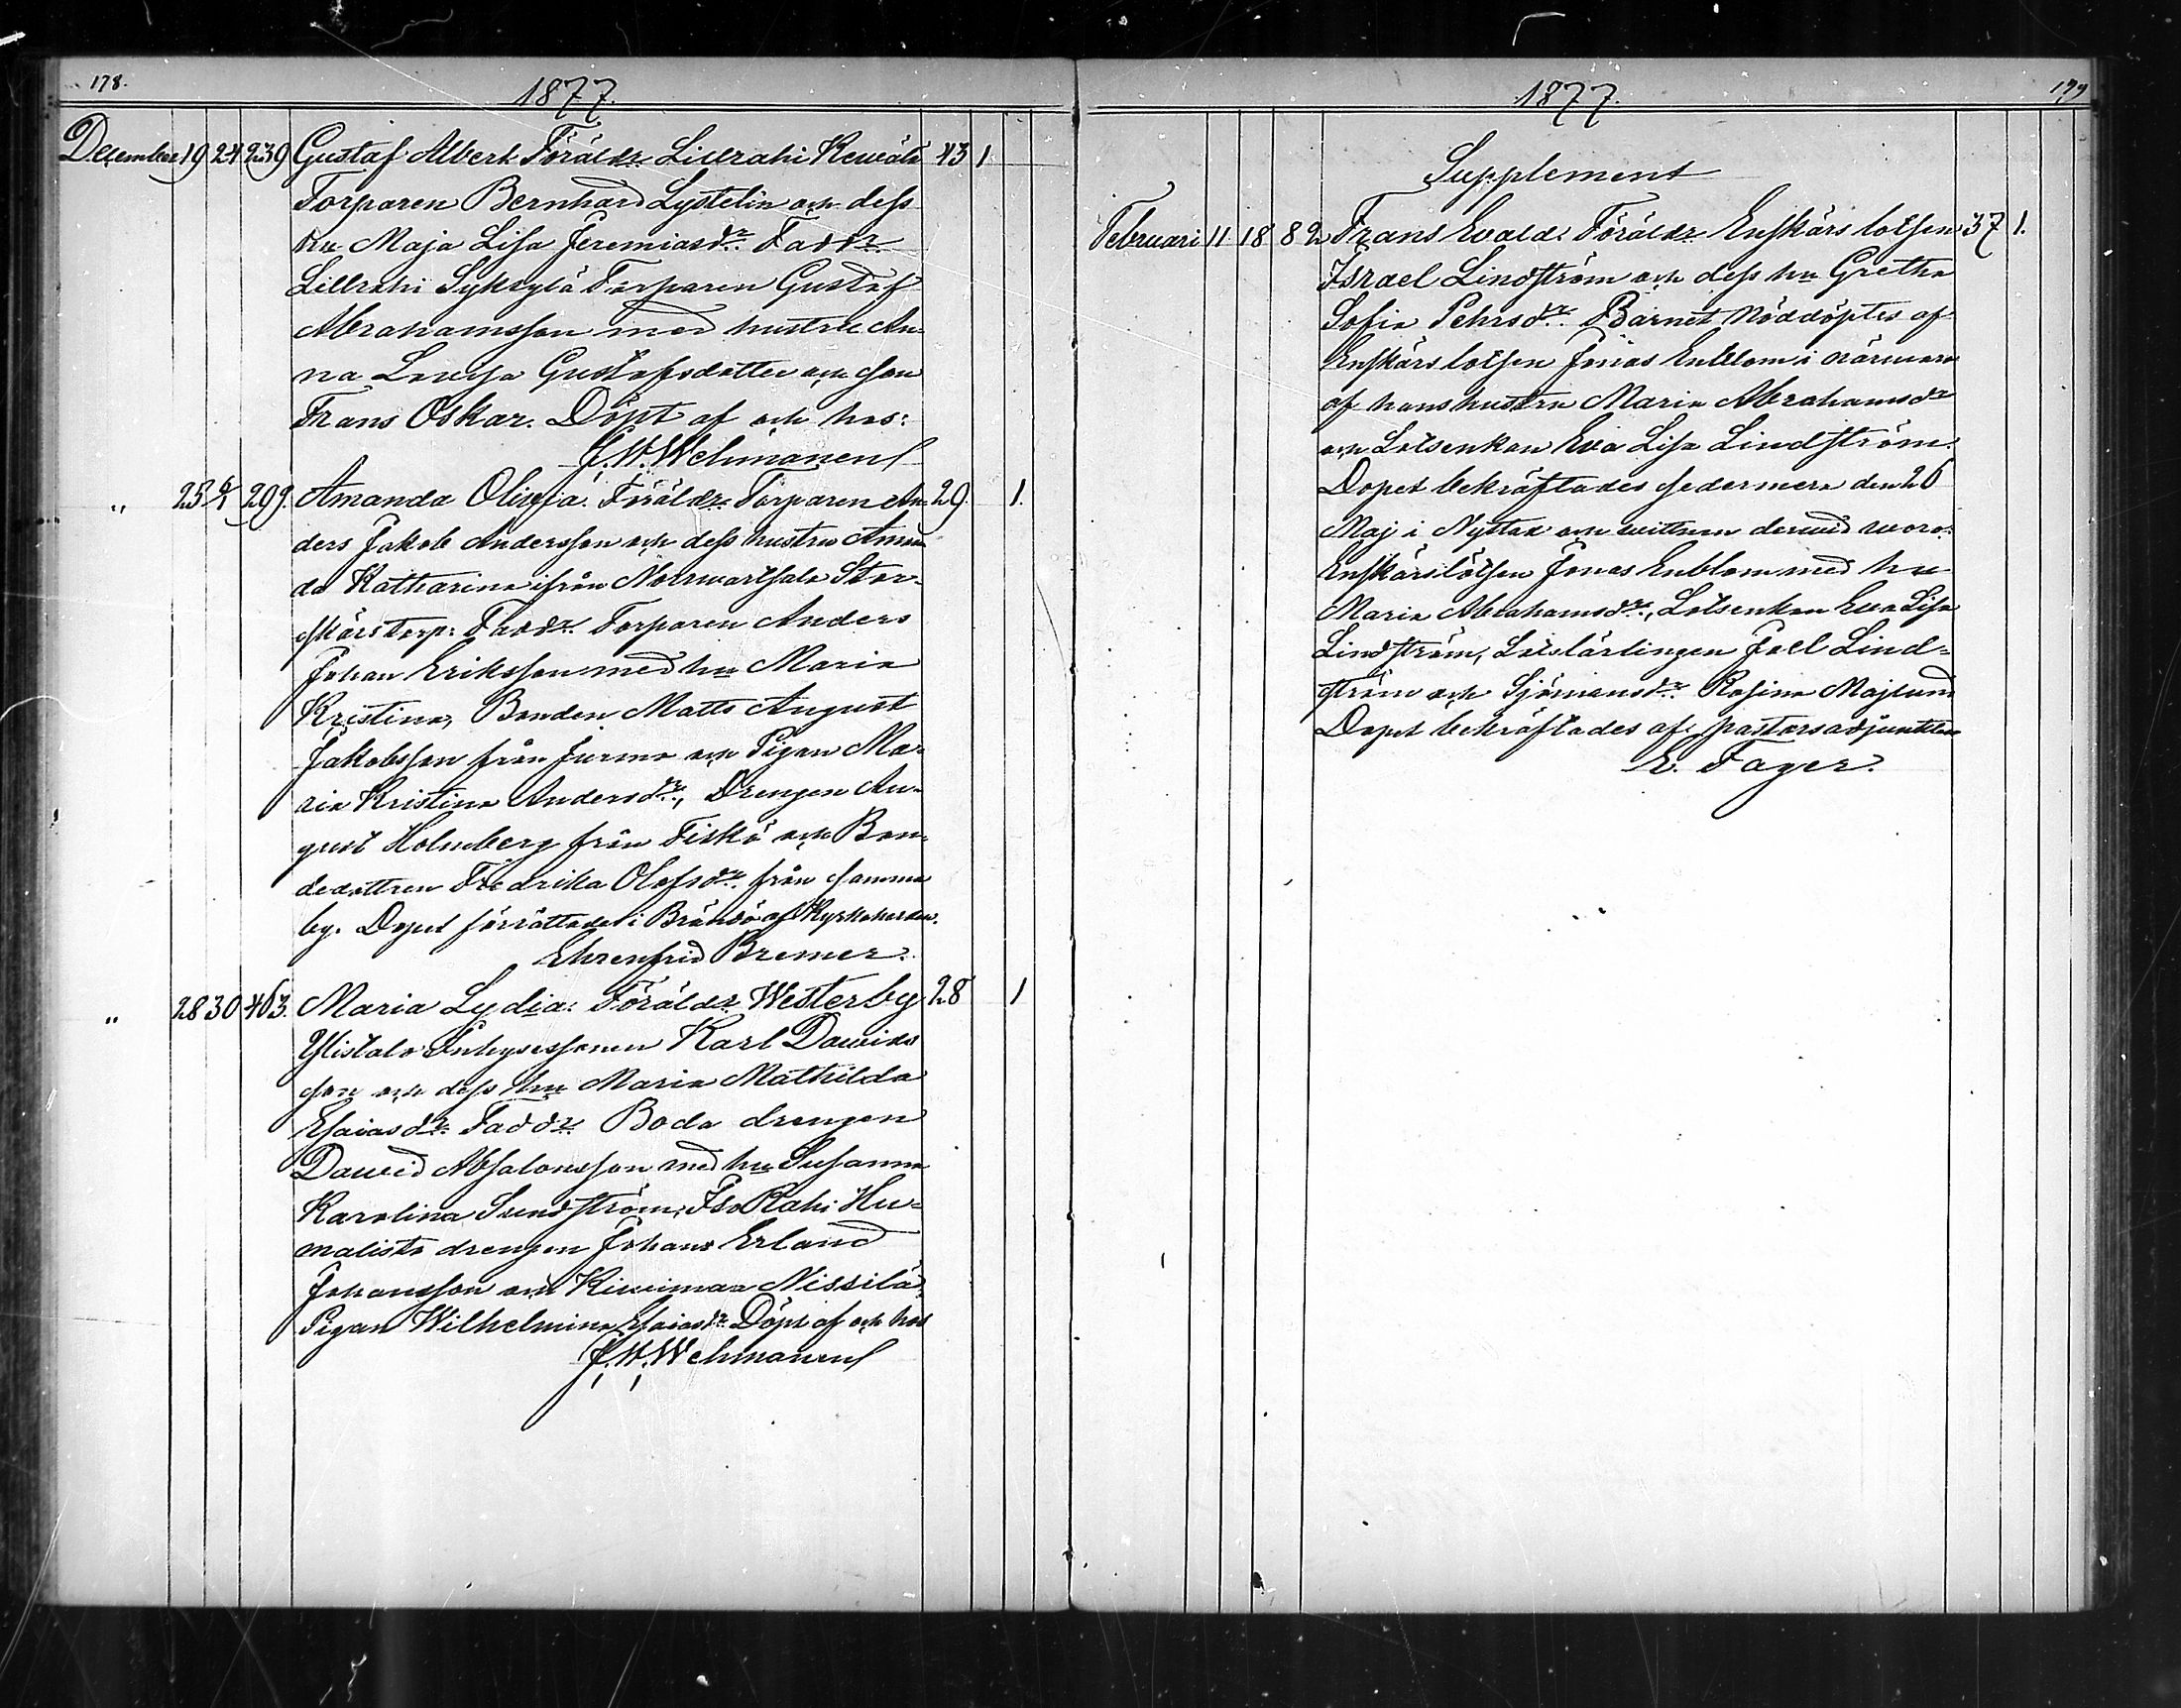 178.
1877.
December 19 24 239 Gustaf Albert. Föräldr. Lillrahi Keewälä 43 1
Torparen Bernhard Lystelin och dess
hu Maja Lisa Jeremiasdr. Faddr.
Lillrahi Syksylä Torparen Gustaf
Abrahamsson med hustru An-
na Lovisa Gustafsdotter och son
Frans Oskar. Döpt af och hos:
J. W. Wehmanen
" 25 6/1 209. Amanda Olivia. Föräldr. Torparen An- 29. 1.
ders Jakob Andersson och dess hustru Aman
da Katharina ifrån Norrwartsala Stor-
skärstorp: Faddr. Torparen Anders
Johan Eriksson med hu Maria
Kristina, Bonden Matts August
Jakobsson från Jurmo och Pigan Ma-
ria Kristina Andersdr., Drengen Au-
gust Holmberg från Fiskö och Bon-
dedottren Fredrika Olofsdr. från samma
by. Dopet förrättadt i Brändö af Kyrkoherden.
Ehrenfrid Bremer.
" 28 30 463. Maria Lydia: Föräldr. Westerby 28 1
Ylistalo Inhysessonen Karl Dawids
son och dess hu Maria Mathilda
Esaiasdr. Faddr. Boda drengen
Dawid Absalonsson med hu Susanna
Karolina Sundström, Iso Rahi Hu-
malisto drengen Johan Erland
Johansson och Kiwimaa Nissilä
Pigan Wilhelmina Esaiasdr. Döpt af och hos
J. W. Wehmanen
1877.
179
Supplement
Februari 11 18 82 Frans Evald. Föräldr. Enskärs lotsen 37 1.
Israel Lindström och dess hu Gretha
Sofia Pehrsdr. Barnet nöddöptes af
Enskärs lotsen Jonas Enblom i närwaro
af hans hustru Maria Abrahamsdr
och Lotsenkan Eva Lisa Lindström.
Dopet bekräftades sedermera den 26
Maj i Nystad och wittnen derwid woro:
Enskärslotsen Jonas Enblom med hu
Maria Abrahamsdr., Lotsenkan Eva Lisa
Lindström, Lotslärlingen Joel Lind-
ström och Sjömansdr. Rosina Majlund
Dopet bekräftades af pastorsadjunkten
E. Fager.